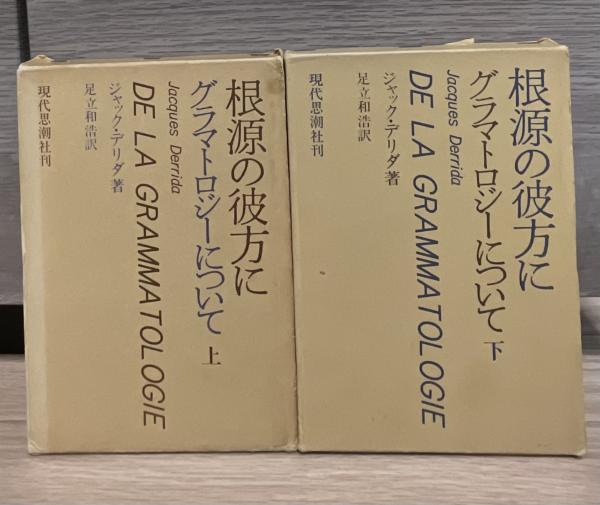 根源の彼方に
グラマトロジーについて 上
Jacques Derrida
DE LA GRAMMATOLOGIE
ジャック・デリダ 著
足立和浩訳
現代思潮社刊
根源の彼方に
グラマトロジーについて 下
Jacques Derrida
DE LA GRAMMATOLOGIE
ジャック・デリダ 著
足立和浩訳
現代思潮社刊